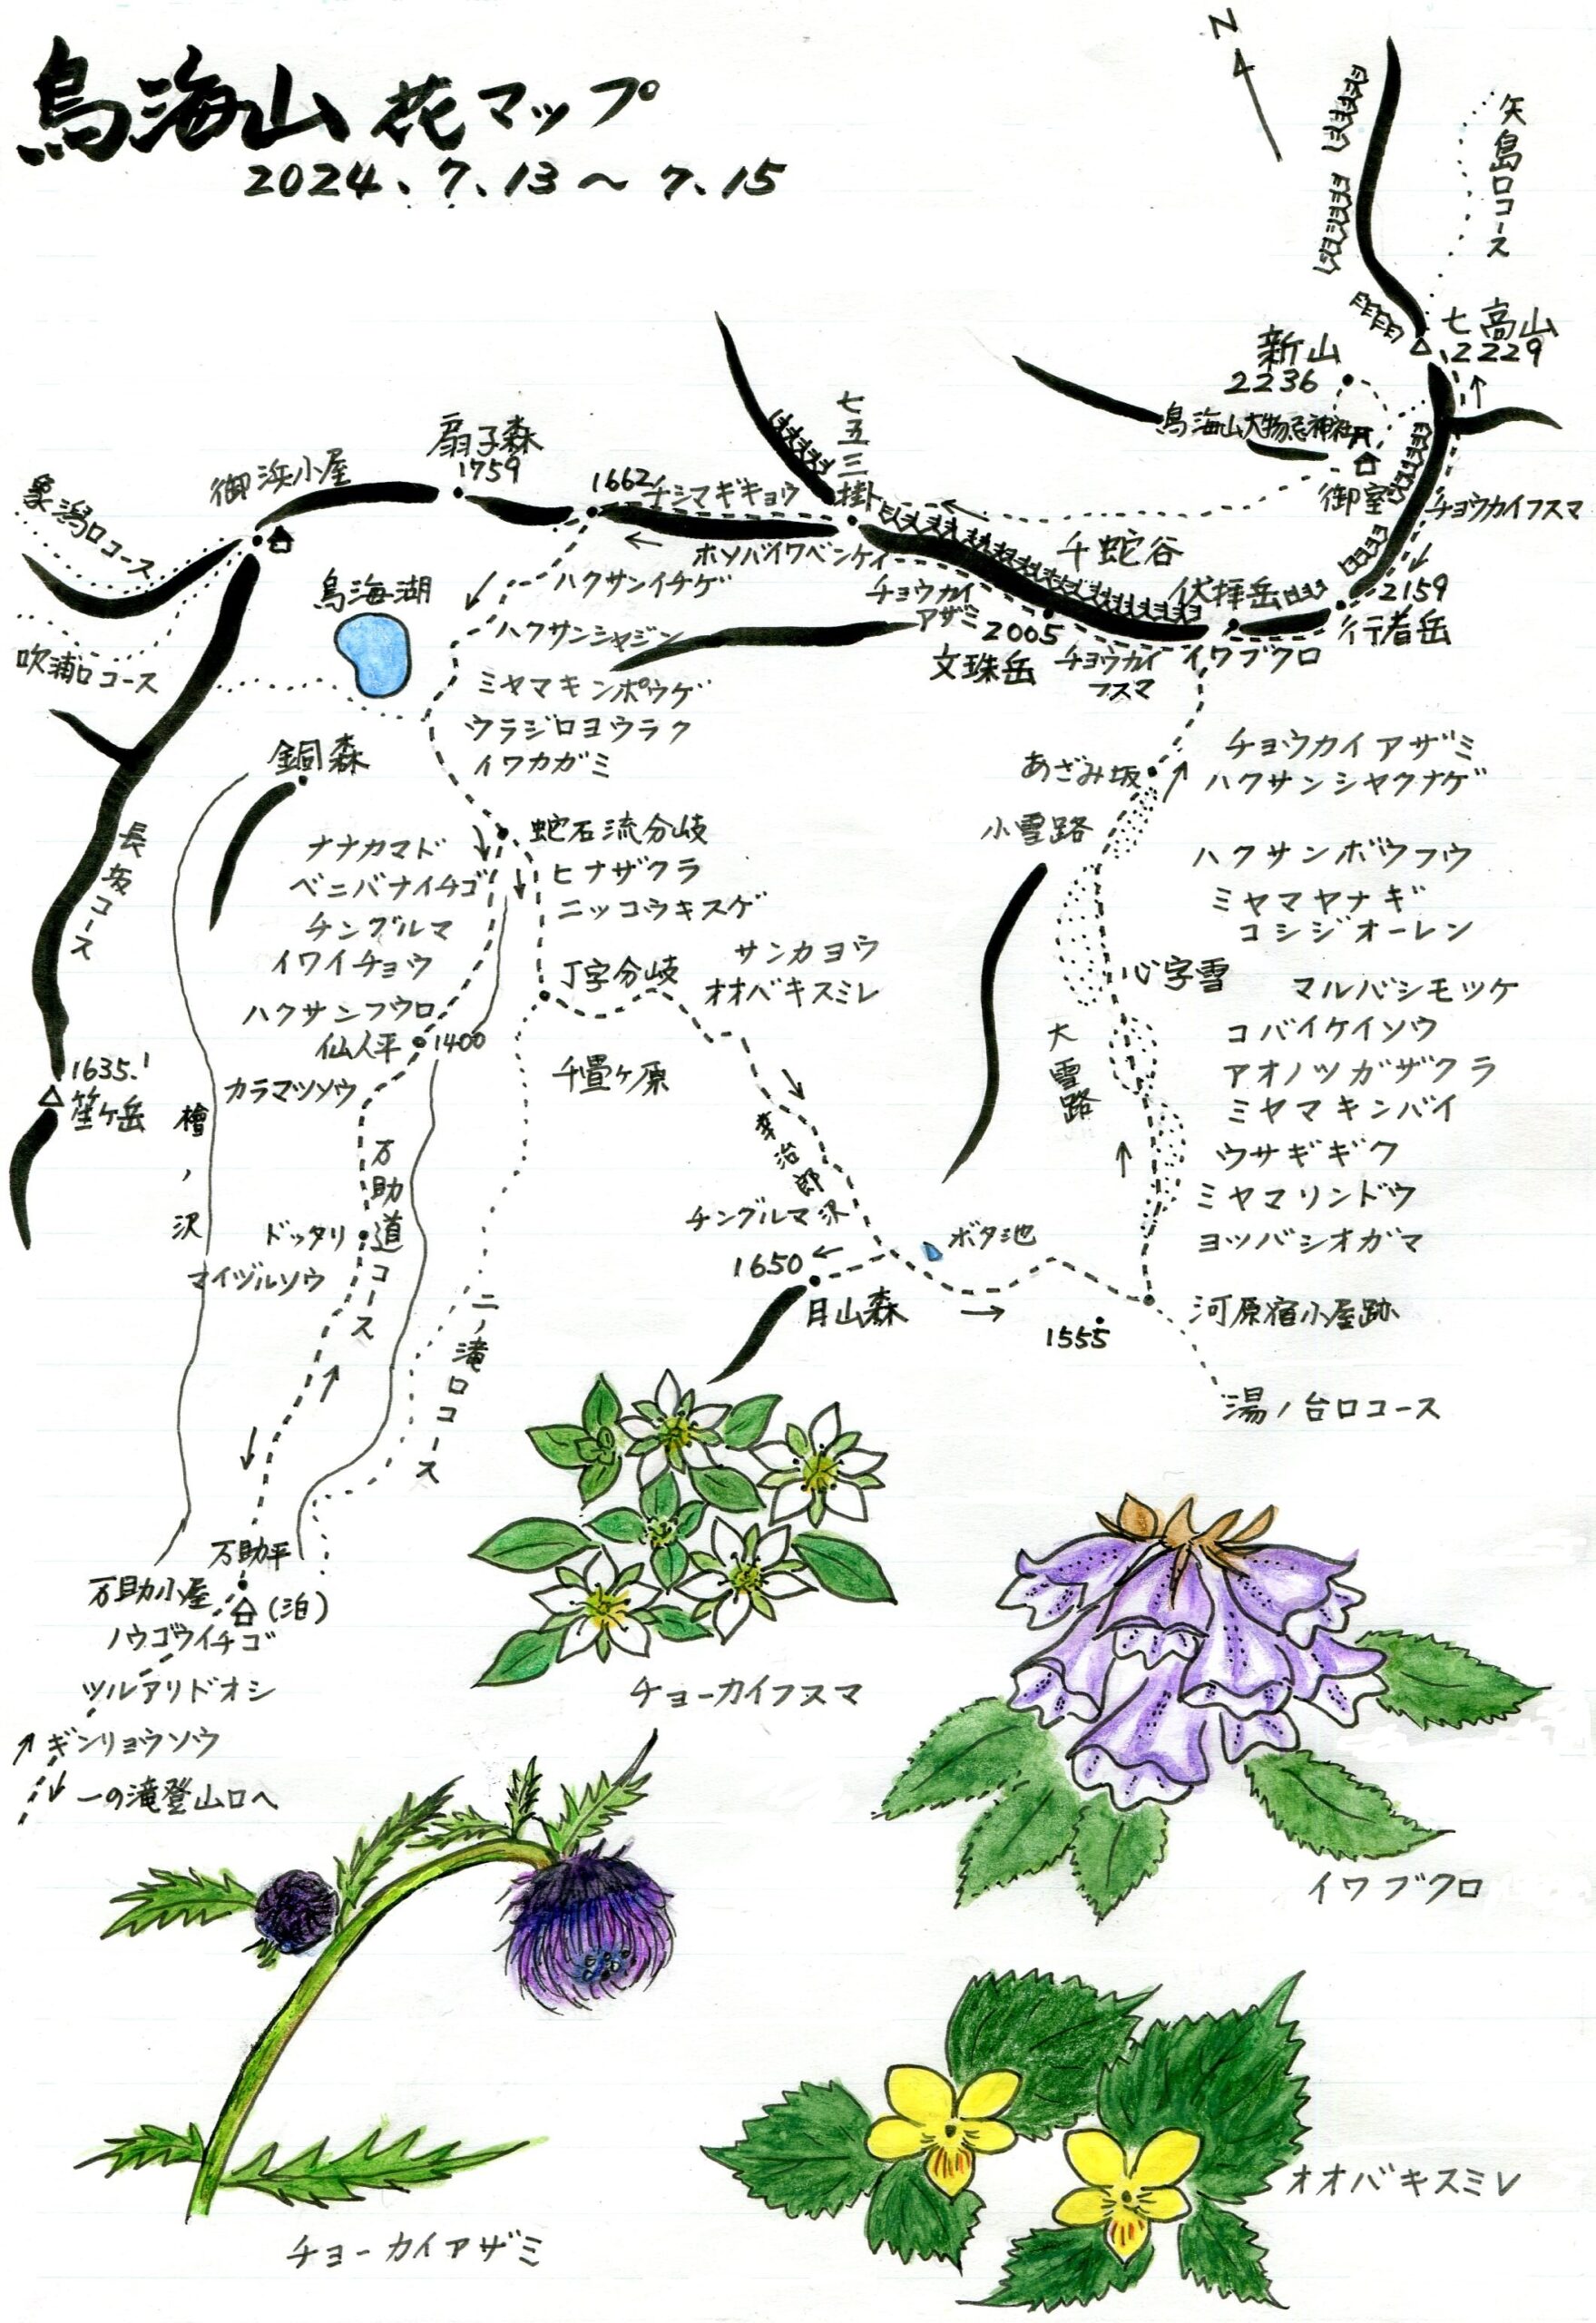 鳥海山 花マップ
2024.7.13～7.15
N
矢島口コース
七高山
2229
新山
2236
鳥海山大物忌神社
御室
チョウカイフスマ
七五三掛
扇子森
1759
御浜小屋
象潟口コース
1662
チシマギキョウ
ホソバイワベンケイ
千蛇谷
伏拝岳
2159
行者岳
ハクサンイチゲ
チョウカイ
アザミ
2005
文珠岳
チョウカイ
フスマ
イワブクロ
鳥海湖
ハクサンシャジン
吹浦口コース
ミヤマキンポウゲ
ウラジロヨウラク
イワカガミ
鍋森
あざみ坂
チョウカイアザミ
ハクサンシャクナゲ
小雪路
長坂コース
蛇石流分岐
ナナカマド
ベニバナイチゴ
チングルマ
イワイチョウ
ハクサンフウロ
ヒナザクラ
ニッコウキスゲ
ハクサンボウフウ
ミヤマヤナギ
コシジオーレン
丁字分岐
サンカヨウ
オオバキスミレ
心字雪
マルバシモツケ
コバイケイソウ
アオノツガザクラ
ミヤマキンバイ
ウサギギク
ミヤマリンドウ
ヨツバシオガマ
大雪路
仙人平
1400
カラマツソウ
千畳ヶ原
1635.1
笙ヶ岳
檜ノ沢
万助道コース
ドッタリ
マイヅルソウ
幸治郎沢
チングルマ
1650
月山森
ボタ池
1555
河原宿小屋跡
湯ノ台口コース
二ノ滝口コース
万助平
万助小屋
(泊)
ノウゴウイチゴ
ツルアリドオシ
ギンリョウソウ
一の滝登山口へ
チョーカイフスマ
イワブクロ
チョーカイアザミ
オオバキスミレ